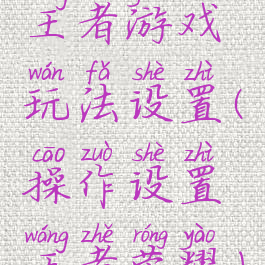 王者游戏
wán fǎ shè zhì
玩法设置(
cāo zuò shè zhì
操作设置
wáng zhě róng yào
王者荣耀)